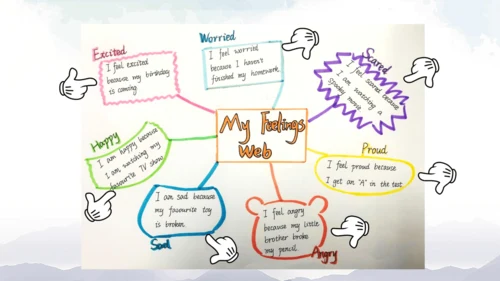 Worried
I feel worried
because I haven't
finished my homework.
Excited
I feel excited
because my birthday
is coming
Scared
I feel scared because
I am watching a
spooky movie
My Feelings
Web
Happy
I am happy because
I am watching my
favourite TV show.
Proud
I feel proud because
I get an "A" in the test.
I am sad because
my favourite toy
is broken.
Sad
I feel angry
because my little
brother broke
my pencil.
Angry